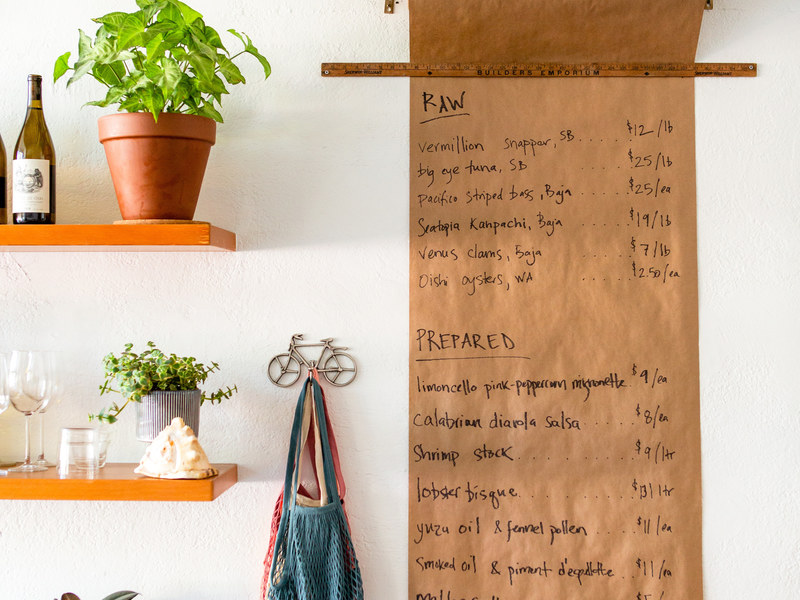 BUILDERS EMPORIUM
RAW
vermillion snappar, SB ..... $12/lb
big eye tuna, SB ..... $25/lb
pacifico striped bass, Baja ..... $25/ea
Seatopia Kanpachi, Baja ..... $19/lb
Venus clams, Baja ..... $7/lb
Oishi oysters, WA ..... $2.50/ea
PREPARED
limoncello pink-peppercorn mignonette .. $9/ea
Calabrian diavola salsa ..... $8/ea
Shrimp stock ..... $9/ltr
lobster bisque ..... /ltr
yuzu oil & fennel pollen ... $11/ea
Smoked oil & piment d'espellette .. $11/ea